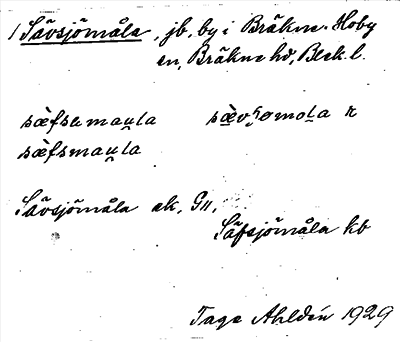 1 Sävsjömåla, jb, by i Bräkne-Hoby
sn, Bräkne hd, Blek. l.
sæ̀fsamau̯la sæ̀vʂomola R
sæ̀fsmau̯la
Sävsjömåla ek, G11,
Säfsjömåla kb
Tage Ahldén 1929